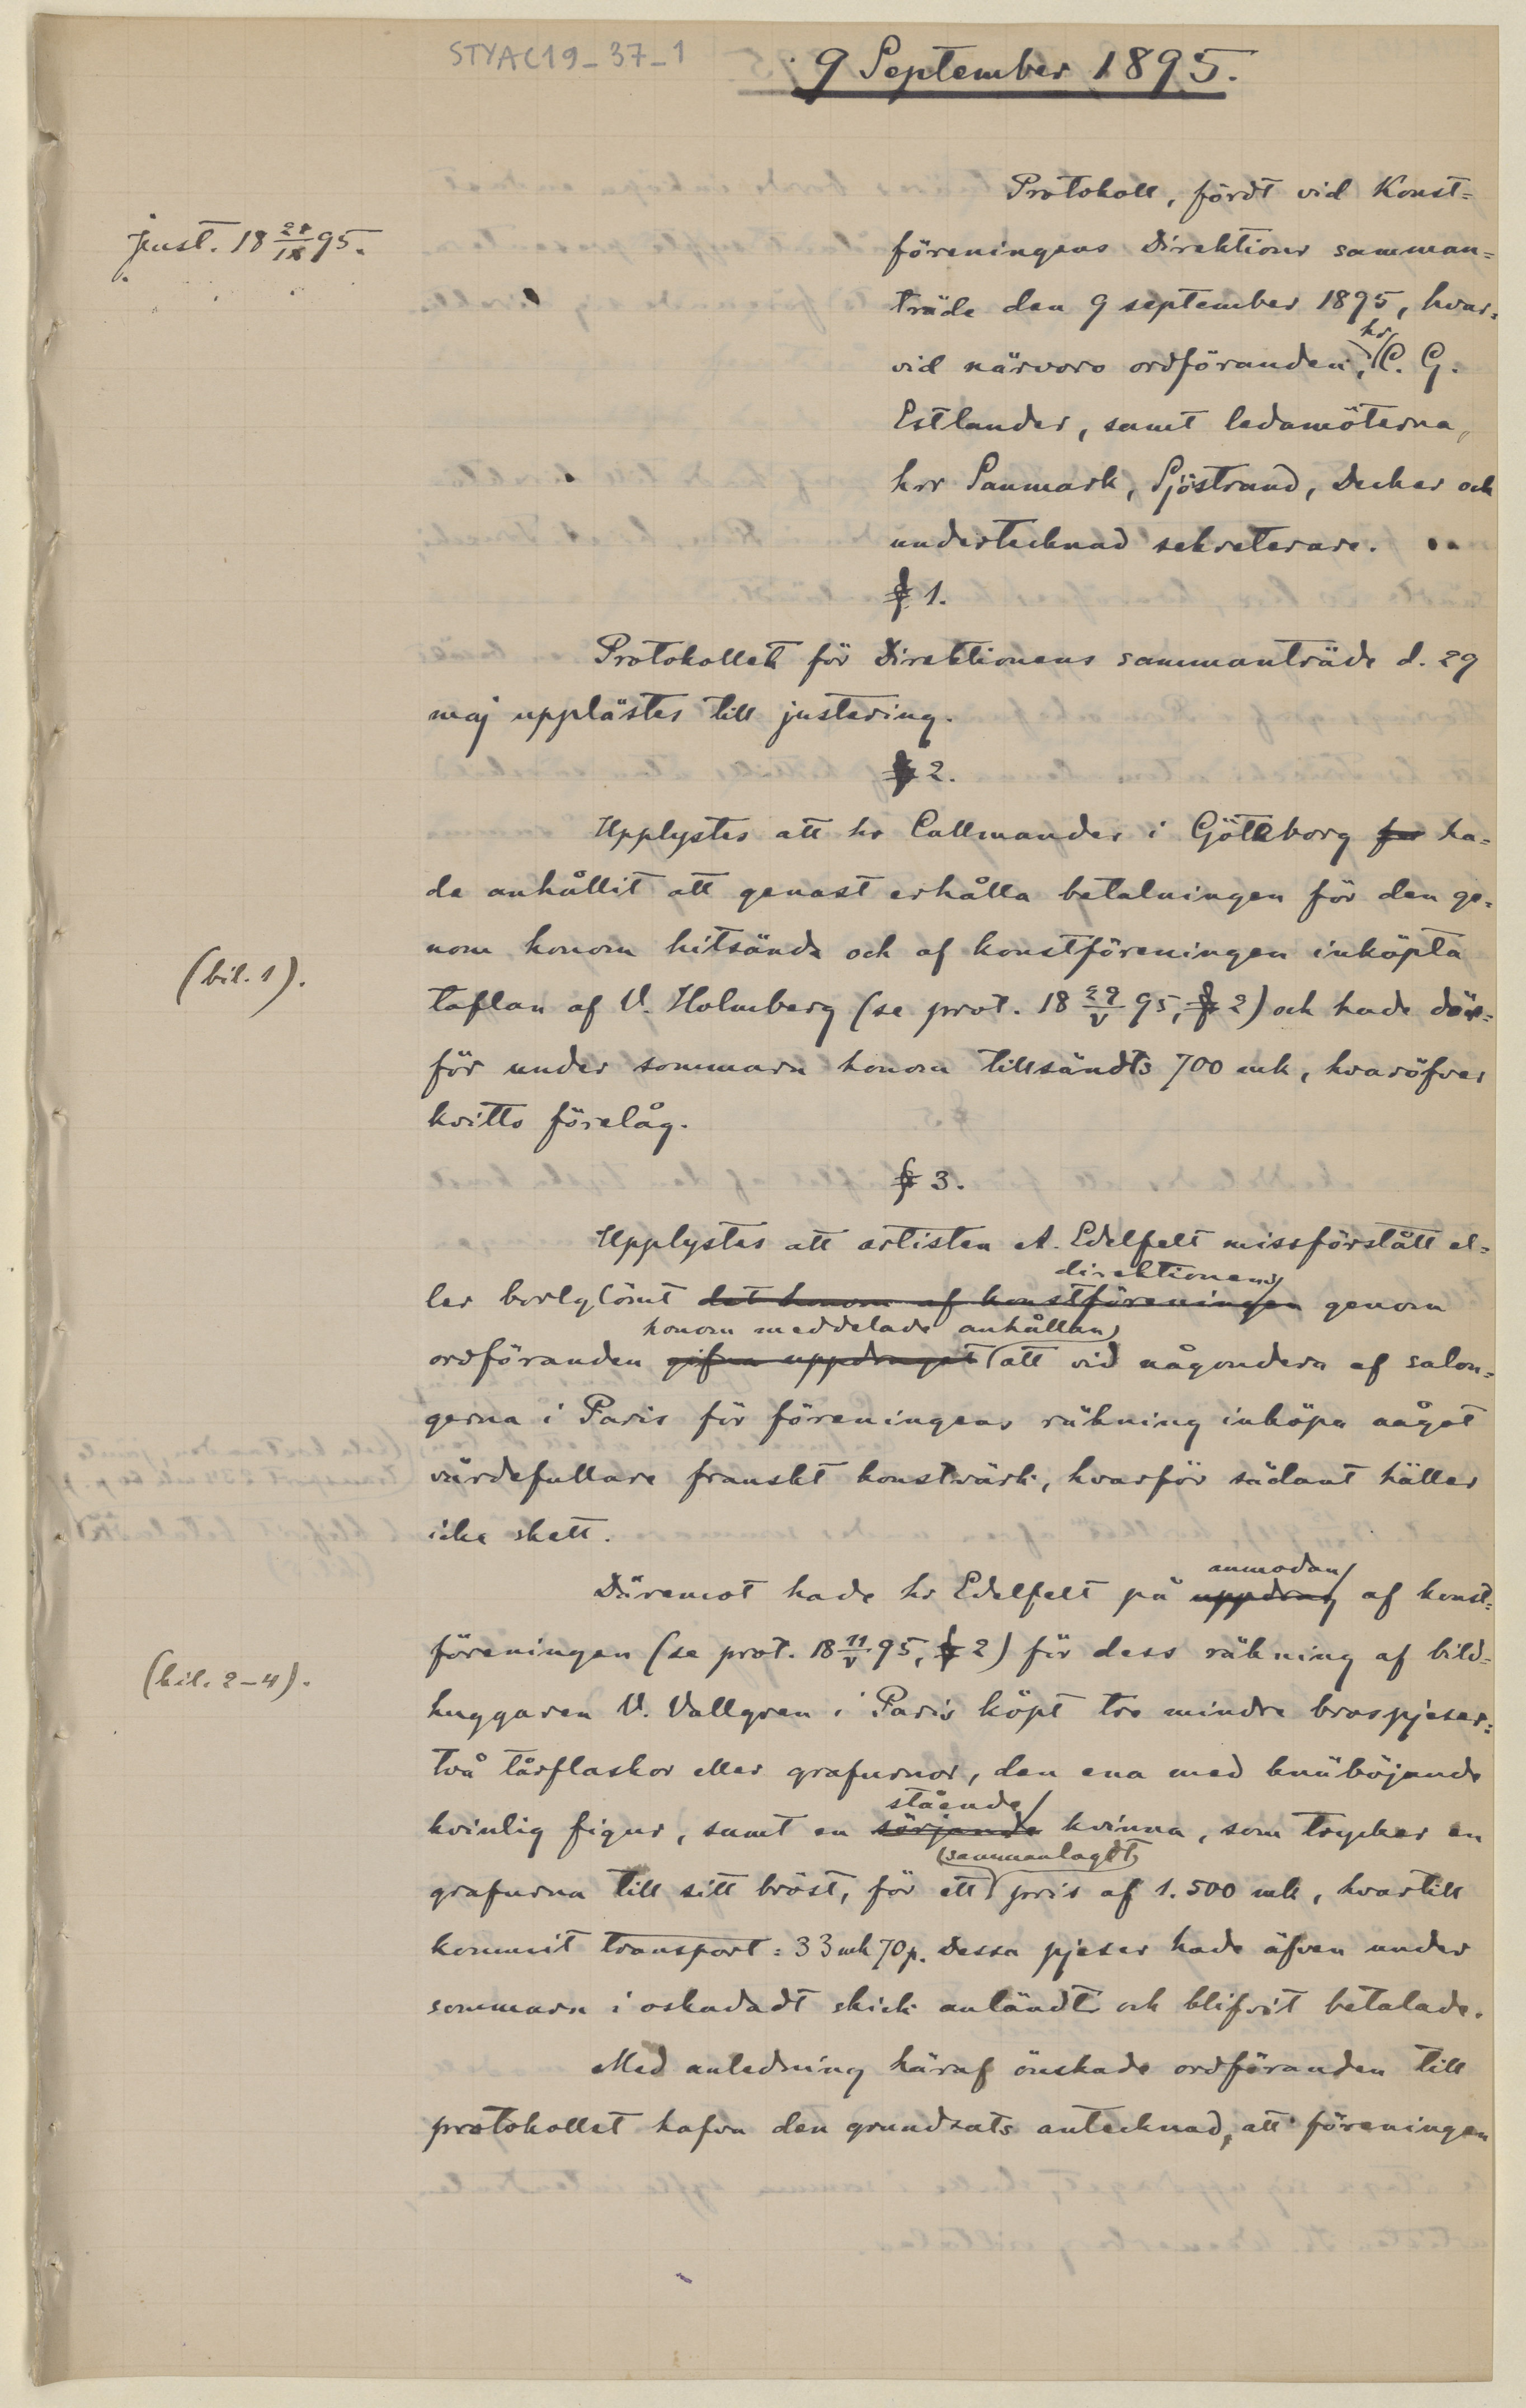 STYAC19_37_1
9 September 1895.
Just. 18 28/IX 95.
Protokoll, fördt vid Konst=
föreningens Direktions samman=
träde den 9 september 1895, hvar=
vid närvoro ordföranden, hr C. G.
Estlander, samt ledamöterna,
hrr Sanmark, Sjöstrand, Decker och
undertecknad sekreterare.
§ 1.
Protokollet för Direktionens sammanträde d. 29
maj upplästes till justering.
§ 2.
Upplystes att hr Callmander i Göteborg ha=
de anhållit att genast erhålla betalningen för den ge=
nom honom hitsända och af konstföreningen inköpta
(bil. 1).
taflan af V. Holmberg (se prot. 18 29/V 95, § 2) och hade där=
för under sommarn honom tillsändts 700 mk, hvaröfver
kvitto förelåg.
§ 3.
Upplystes att artisten A. Edelfelt missförstått el=
direktionens
ler bortglömt det honom af konstföreningen genom
honom meddelade anhållan
ordföranden gifna uppdraget att vid någondera af salon=
gerna i Paris för föreningens räkning inköpa något
värdefullare franskt konstvärk, hvarför sådant häller
icke skett.
anmodan
Däremot hade hr Edelfelt på uppdrag af konst=
föreningen (se prot. 18 11/V 95, § 2) för dess räkning af bild=
(bil. 2-4).
huggaren V. Vallgren i Paris köpt tre mindre bronspjeser:
två tårflaskor eller grafurnor, den ena med knäböjande
stående
kvinlig figur, samt en sörjande kvinna, som trycker en
sammanlagdt
grafurna till sitt bröst, för ett pris af 1.500 mk, hvartill
kommit transport: 33 mk 70 p. Dessa pjeser hade äfven under
sommarn i oskadadt skick anländt och blifvit betalade.
Med anledning häraf önskade ordföranden till
protokollet hafva den grundsats antecknad, att föreningen